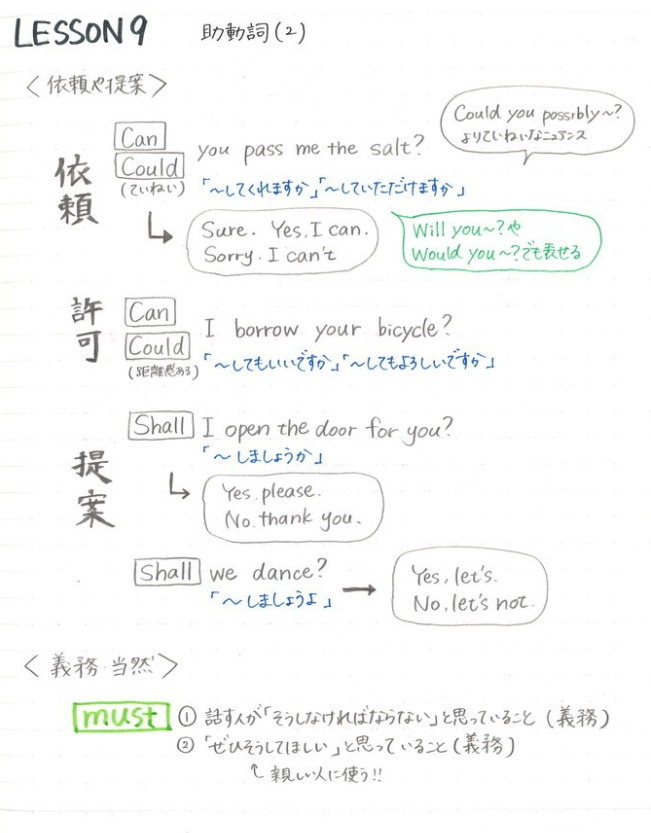 LESSON 9 助動詞(2)
<依頼や提案>
Could you possibly~?
よりていねいなニュアンス
依頼
Can
Could
(ていねい)
you pass me the salt?
「~してくれますか」「~していただけますか」
Sure. Yes, I can.
Sorry. I can't
Will you~?や
Would you~?でも表せる
許可
Can
Could
(距離感ある)
I borrow your bicycle?
「~してもいいですか」「~してもよろしいですか」
提案
Shall I open the door for you?
「~しましょうか」
Yes, please.
No, thank you.
Shall we dance?
「~しましょうよ」
Yes, let's.
No, let's not.
<義務・当然>
must ① 話す人が「そうしなければならない」と思っていること(義務)
② 「ぜひそうしてほしい」と思っていること(義務)
親しい人に使う!!